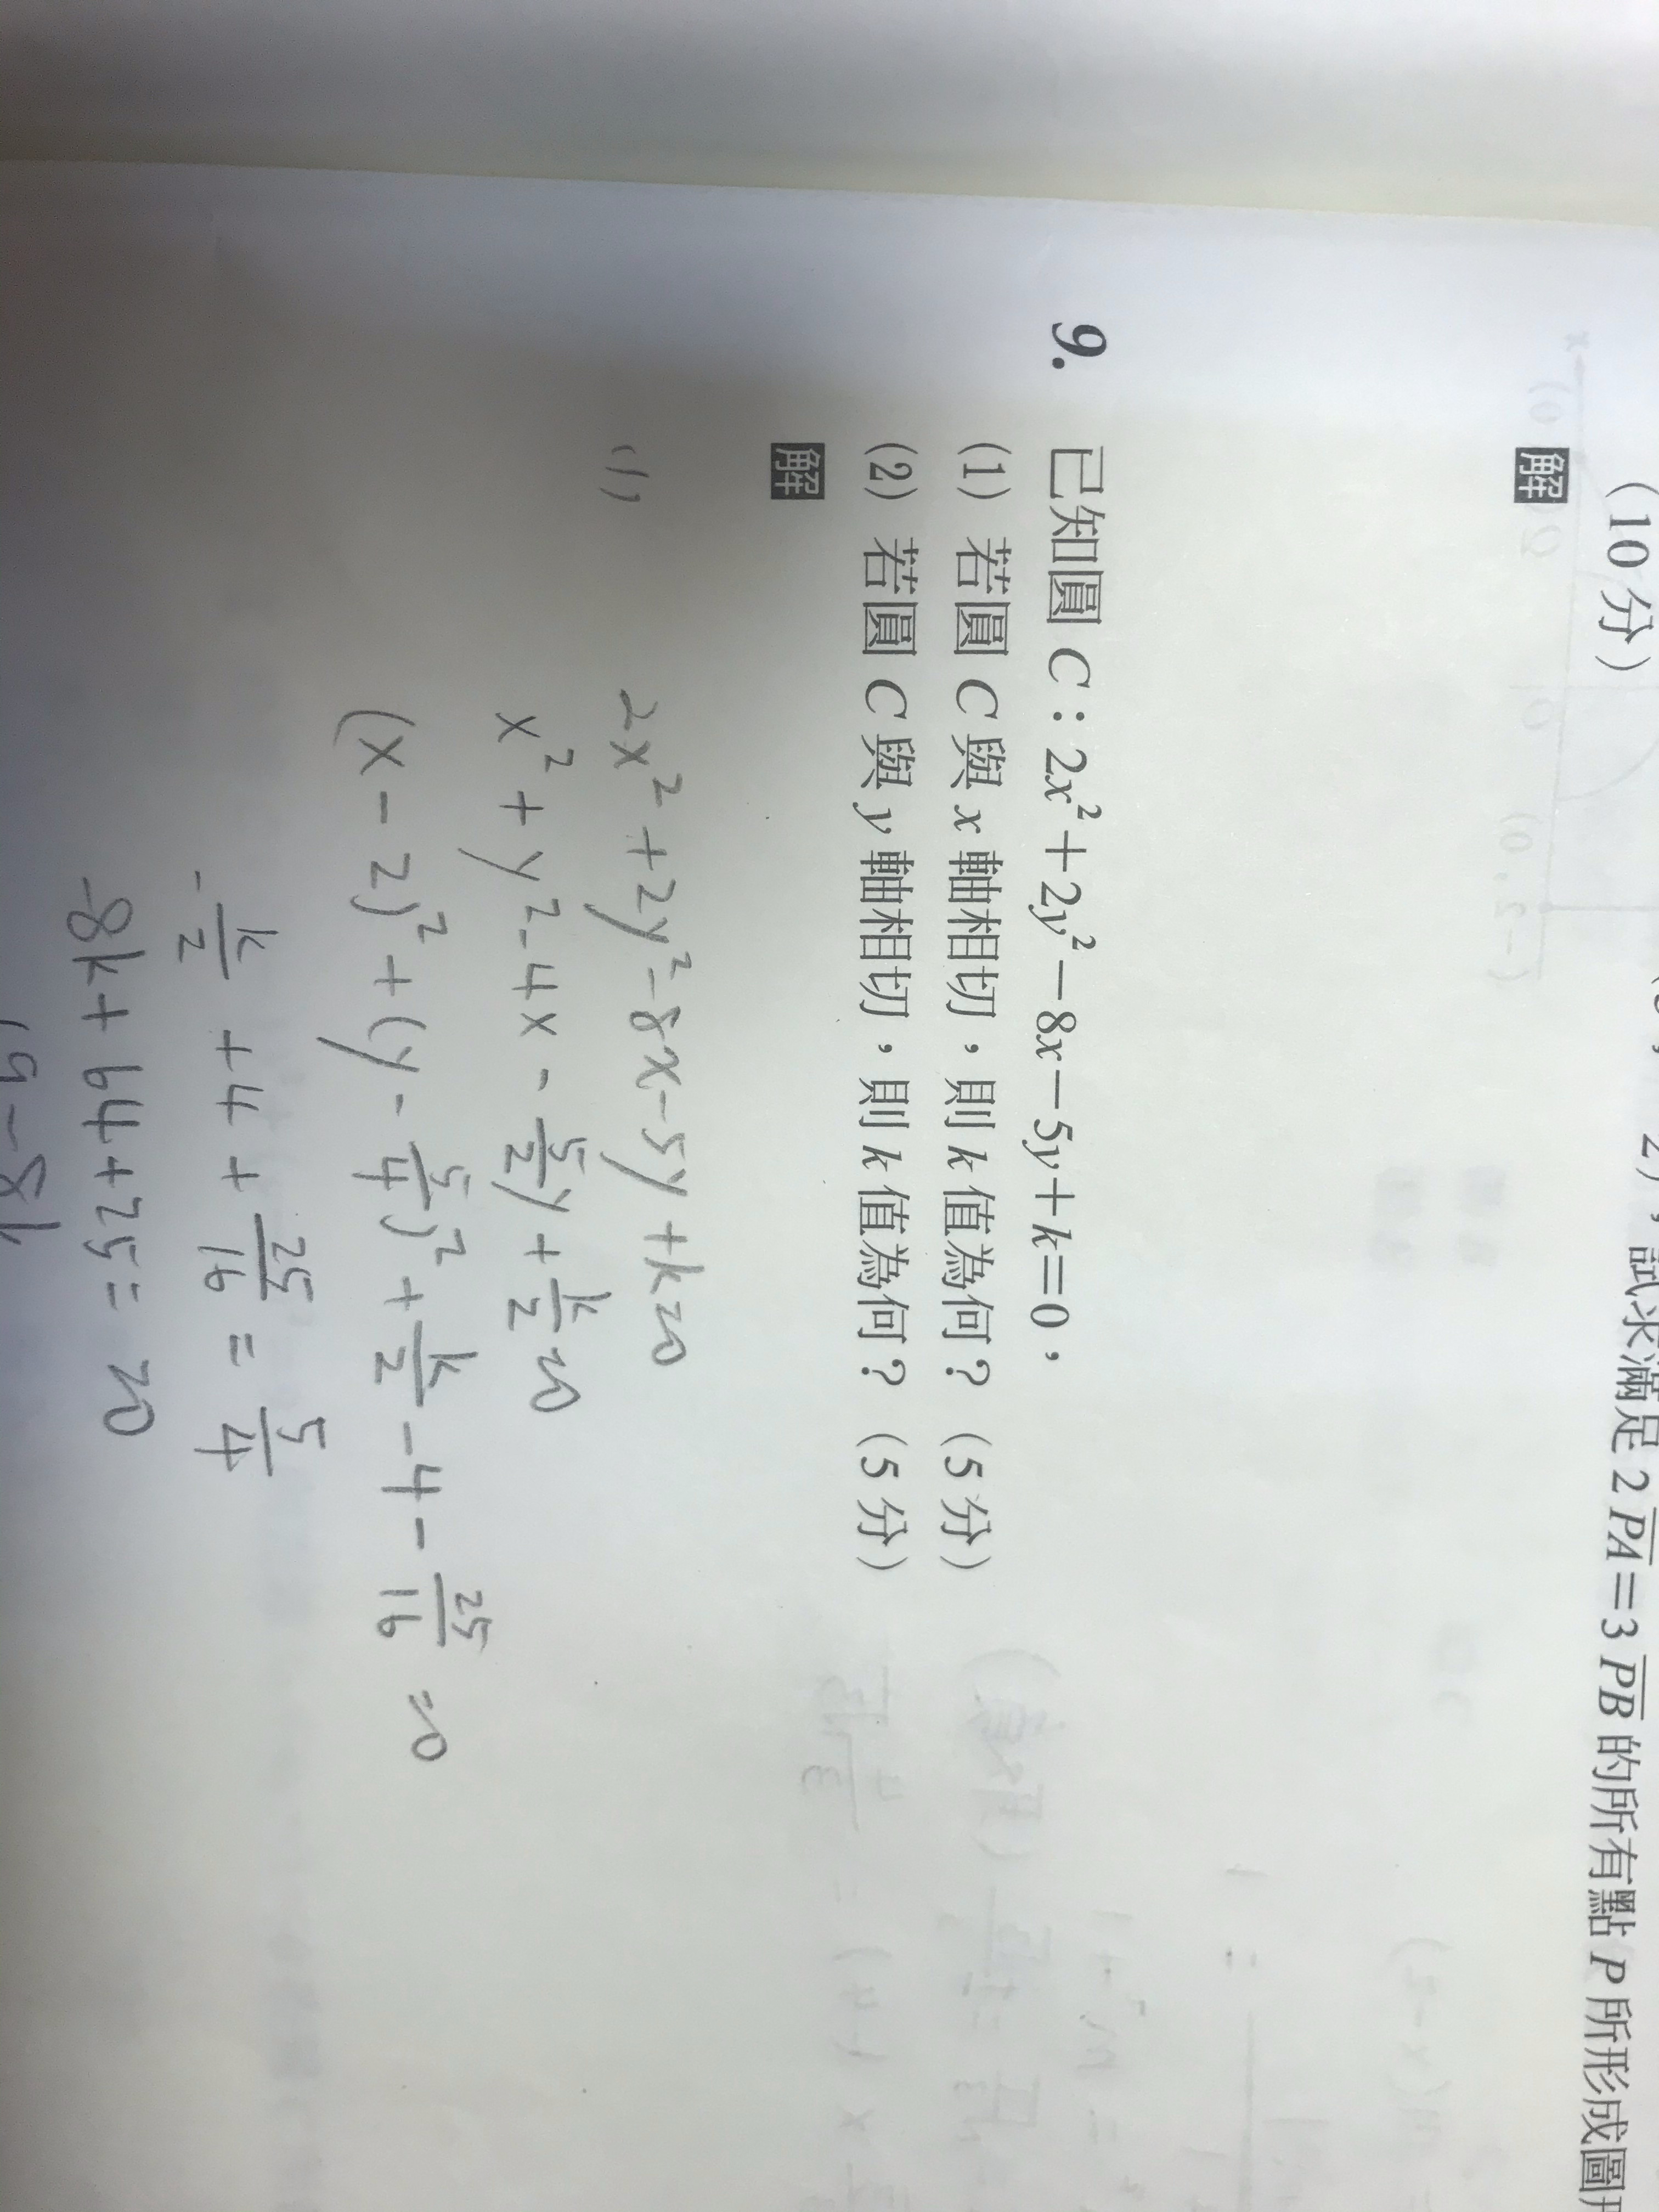 (10分)
2),試求滿足 2PA=3PB 的所有點 P 所形成圖
解
9. 已知圓 C:2x²+2y²-8x-5y+k=0,
(1) 若圓 C 與 x 軸相切,則 k 值為何?(5分)
(2) 若圓 C 與 y 軸相切,則 k 值為何?(5分)
解
(1) 2x²+2y²-8x-5y+k=0
x²+y²-4x-5/2y+k/2=0
(x-2)²+(y-5/4)²+k/2-4-25/16=0
-k/2+4+25/16=5/4
-8k+64+25=20